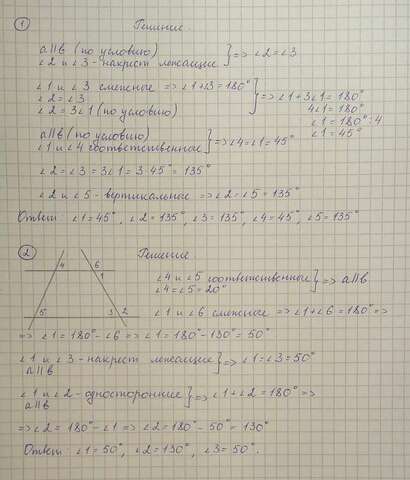 ① Решение.
a||b (по условию)
∠2 и ∠3 - накрест лежащие } => ∠2 = ∠3
∠1 и ∠3 смежные => ∠1+∠3 = 180°
∠2 = ∠3
∠2 = 3∠1 (по условию) } => ∠1 + 3∠1 = 180°
4∠1 = 180°
∠1 = 180° : 4
∠1 = 45°
a||b (по условию)
∠1 и ∠4 соответственное } => ∠4 = ∠1 = 45°
∠2 = ∠3 = 3∠1 = 3·45° = 135°
∠2 и ∠5 - вертикальные => ∠2 = ∠5 = 135°
Ответ: ∠1 = 45°, ∠2 = 135°, ∠3 = 135°, ∠4 = 45°, ∠5 = 135°
② Решение
4 6
1
5 3 2
∠4 и ∠5 соответственные
∠4 = ∠5 = 20° } => a||b
∠1 и ∠6 смежные => ∠1 + ∠6 = 180° =>
=> ∠1 = 180° - ∠6 => ∠1 = 180° - 130° = 50°
∠1 и ∠3 - накрест лежащие
a||b } => ∠1 = ∠3 = 50°
∠1 и ∠2 - односторонние
a||b } => ∠1 + ∠2 = 180° =>
=> ∠2 = 180° - ∠1 => ∠2 = 180° - 50° = 130°
Ответ: ∠1 = 50°, ∠2 = 130°, ∠3 = 50°.